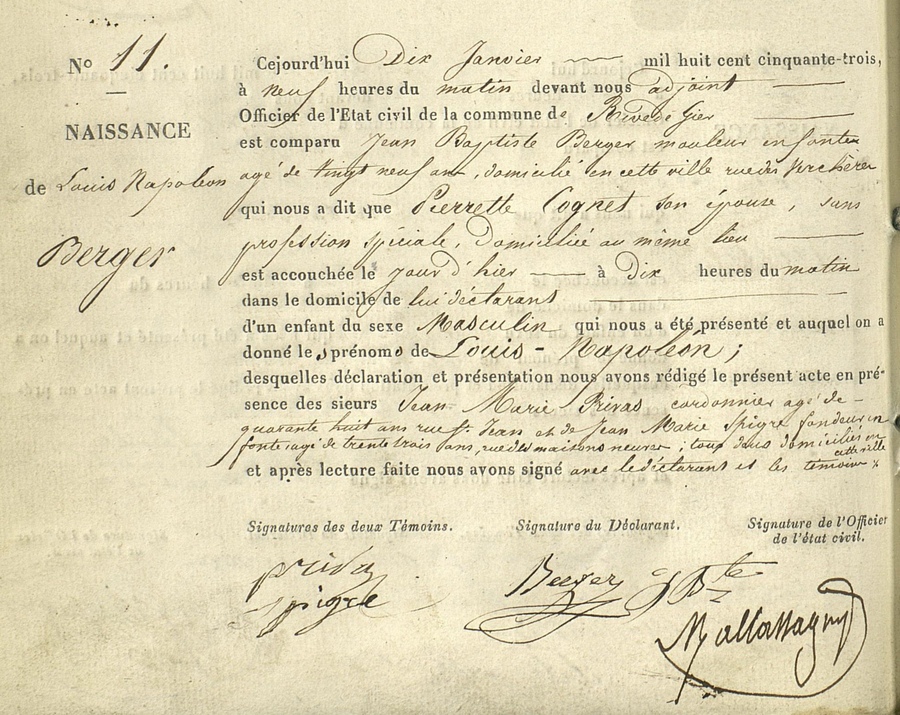 N° 11.
NAISSANCE
de Louis Napoléon
Berger
Cejourd'hui Dix Janvier mil huit cent cinquante-trois,
à neuf heures du matin devant nous adjoint
Officier de l'Etat civil de la commune de Rivedegier
est comparu Jean Baptiste Berger mouleur en fonte
agé de vingt neuf ans, domicilié en cette ville rue des Verchères
qui nous a dit que Pierrette Cognet son épouse, sans
profession spéciale, domiciliée au même lieu
est accouchée le jour d'hier à dix heures du matin
dans le domicile de lui déclarant
d'un enfant du sexe Masculin qui nous a été présenté et auquel on a
donné les prénoms de Louis-Napoléon;
desquelles déclaration et présentation nous avons rédigé le présent acte en pré-
sence des sieurs Jean Marie Privas cordonnier agé de
quarante huit ans rue St. Jean et de Jean Marie Spigre fondeur en
fonte, agé de trente trois ans, rue des maisons neuves, tous deux domiciliés en
cette ville
et après lecture faite nous avons signé avec le déclarant et les témoins
Signatures des deux Témoins.
Signature du Déclarant.
Signature de l'Officier
de l'état civil.
privas
spigre
Berger J Bte